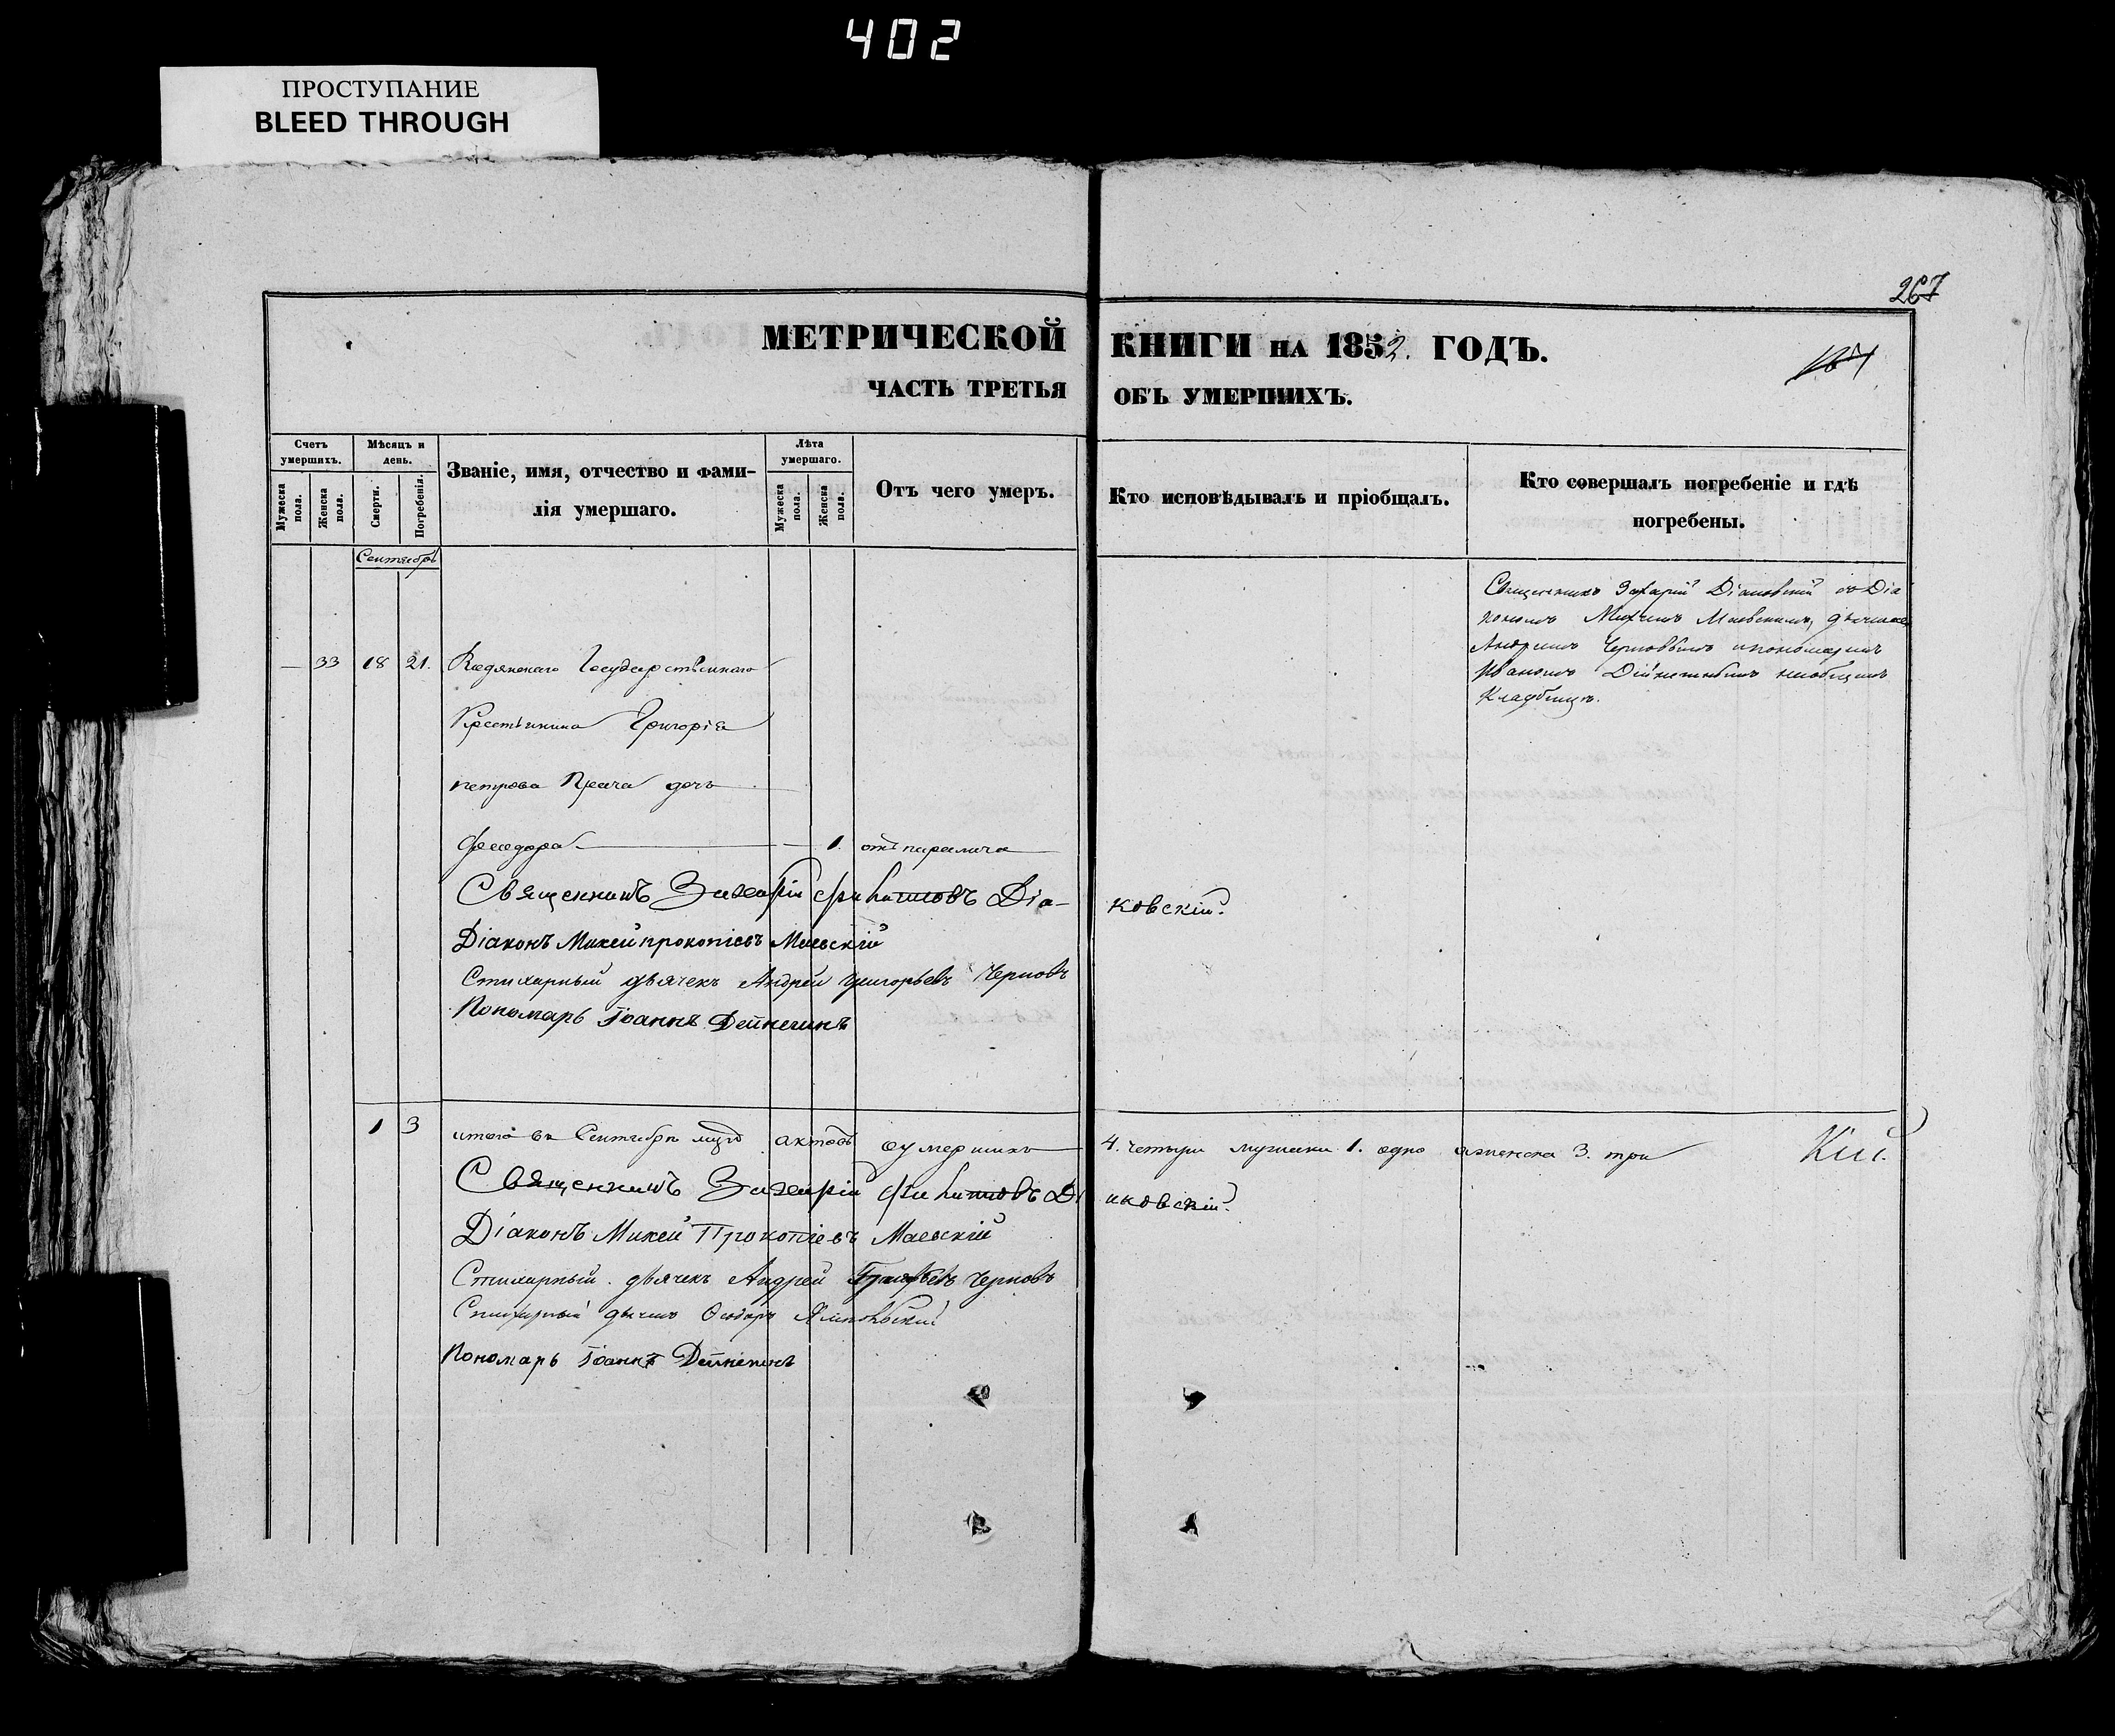 402
ПРОСТУПАНИЕ
BLEED THROUGH
267
МЕТРИЧЕСКОЙ КНИГИ НА 1852. ГОДЪ.
ЧАСТЬ ТРЕТЬЯ ОБЪ УМЕРШИХЪ.
Счетъ умершихъ.
Мужеска пола.
Женска пола.
Мѣсяцъ и день.
Смерти.
Погребенія.
Званіе, имя, отчество и фами-
лія умершаго.
Лѣта умершаго.
Мужеска пола.
Женска пола.
Отъ чего умеръ.
Кто исповѣдывалъ и пріобщалъ.
Кто совершалъ погребеніе и гдѣ
погребены.
Сентябрь
Священникъ Захарій Діаковскій съ Діа
кономъ Михеимъ Маевскимъ, дьячкомъ
Андреимъ Черновымъ ипономаремъ
Иваномъ
Кладбищѣ.
— 33 18 21. Государственнаго
Крестьянина Григорія
петрова дочь
Феодора — 1. отъ паралича
Священникъ Захарій Филиповъ Діа-
ковскій.
Діаконъ Михей прокопіевъ Маевскій
Стихарный дьячекъ Андрей Григорьевъ Черновъ
Пономарь Іоаннъ Дейнекинъ
1 3 итого въ Сентябрѣ умершихъ 4. четыре мужеска 1. одно аженска 3. три
Священникъ Захарій Филиповъ Діаковскій.
Діаконъ Михей Прокопіевъ Маевскій
Стихарный дьячекъ Андрей Григорьевъ Черновъ
Стихарный дьячекъ
Пономарь Іоаннъ Дейнекинъ